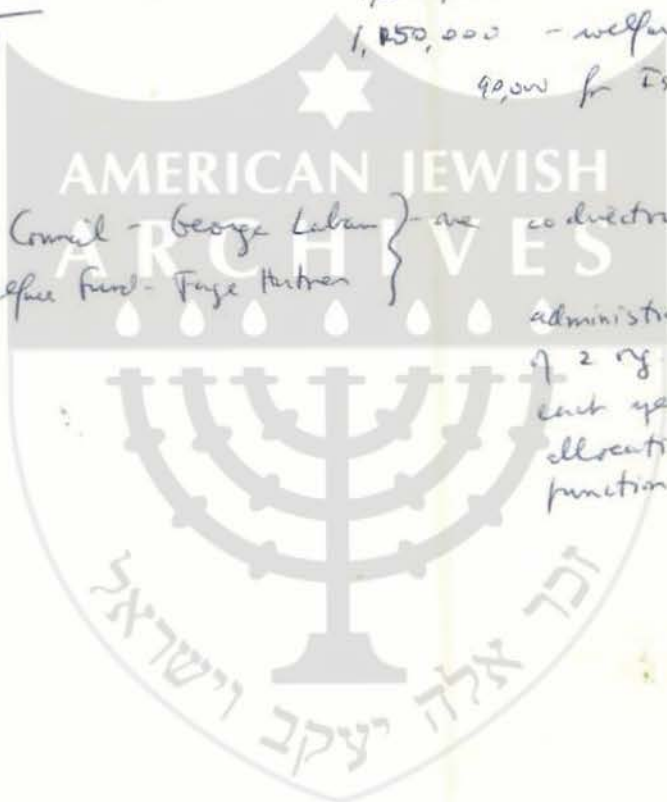 1,250,000 - welfa
90,000 for Is
AMERICAN JEWISH
ARCHIVES
Council - George Laban } - are codirectors
Fund -
administr
of 2
each ye
allocati
function
זכר אלה יעקב וישראל